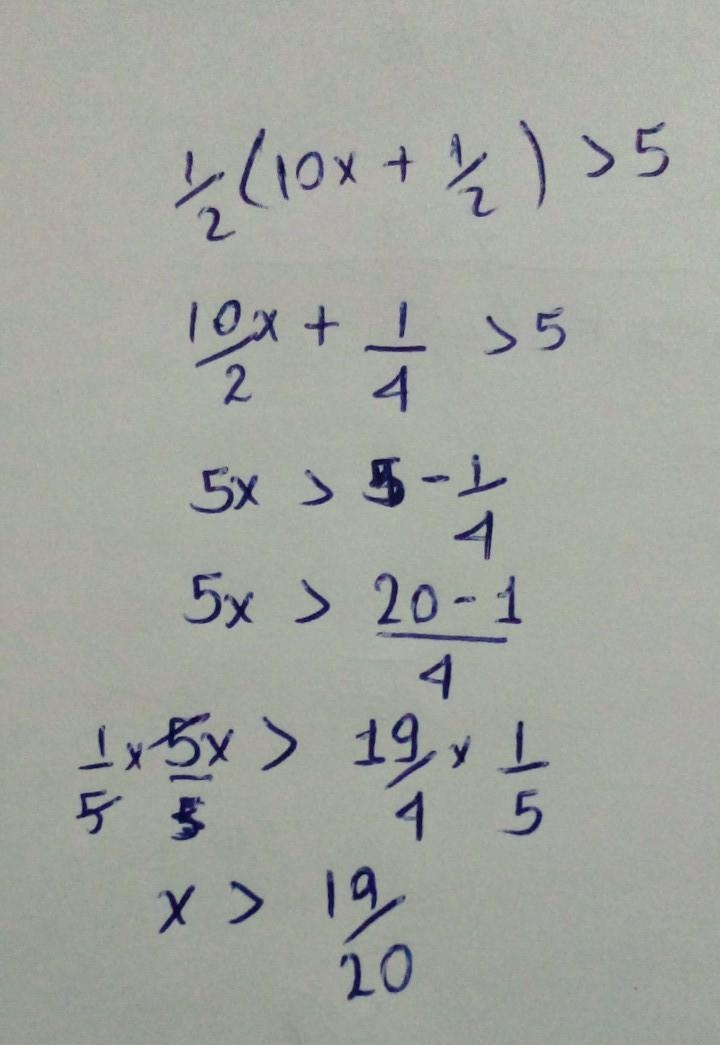 1/2(10x + 1/2) > 5
10x/2 + 1/4 > 5
5x > 5 - 1/4
5x > 20 - 1/4
1/5 x 5x > 19/4 x 1/5
x > 19/20